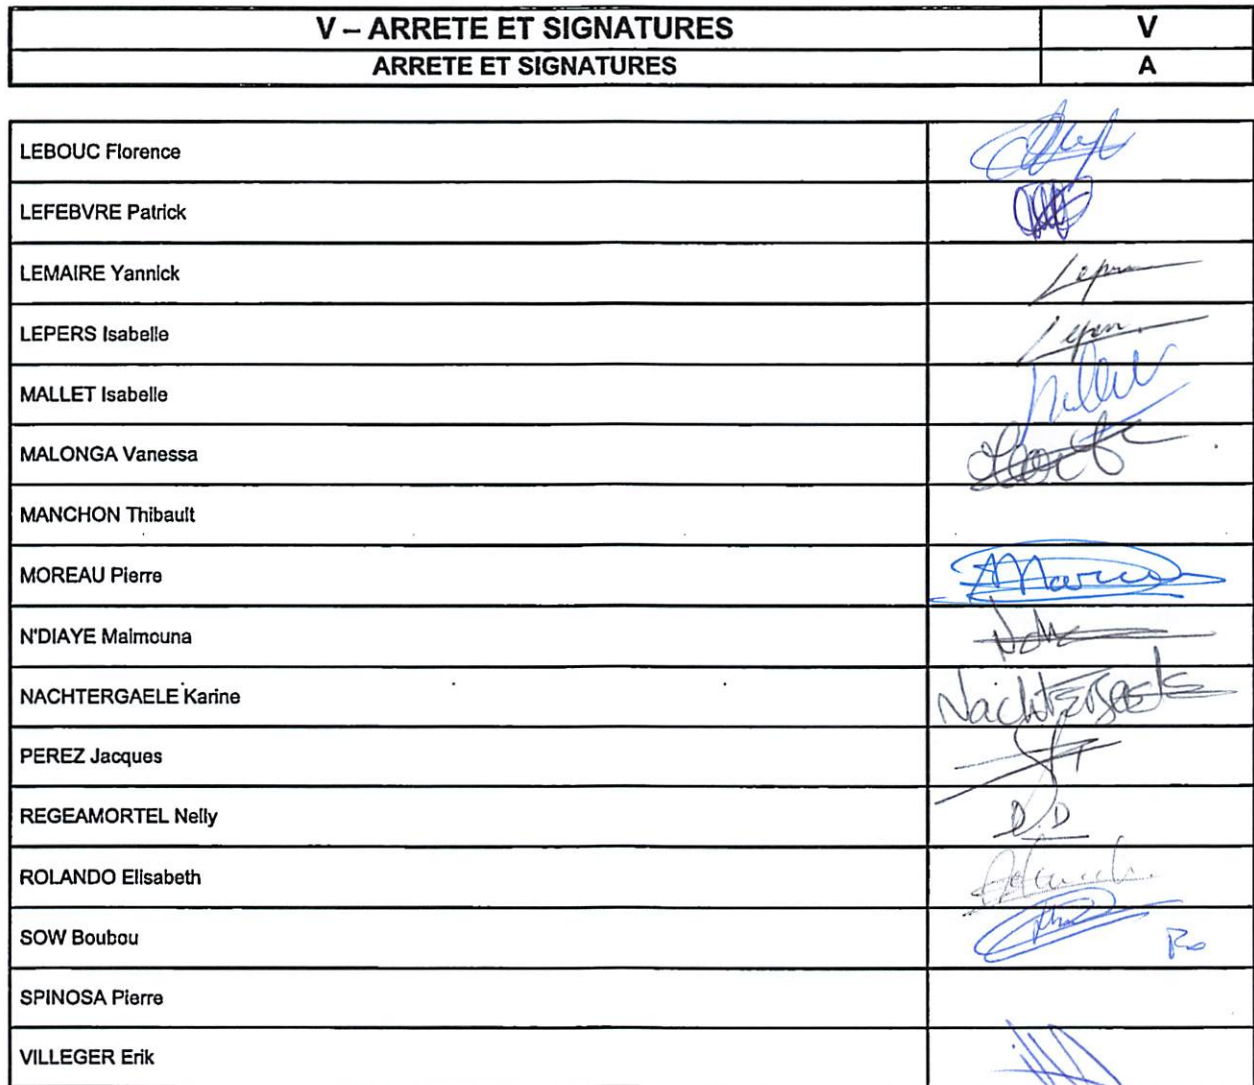 V – ARRETE ET SIGNATURES V
ARRETE ET SIGNATURES A
LEBOUC Florence
LEFEBVRE Patrick
LEMAIRE Yannick
LEPERS Isabelle
MALLET Isabelle
MALONGA Vanessa
MANCHON Thibault
MOREAU Pierre
N'DIAYE Maimouna
NACHTERGAELE Karine
PEREZ Jacques
REGEAMORTEL Nelly D.D
ROLANDO Elisabeth
SOW Boubou
SPINOSA Pierre
VILLEGER Erik